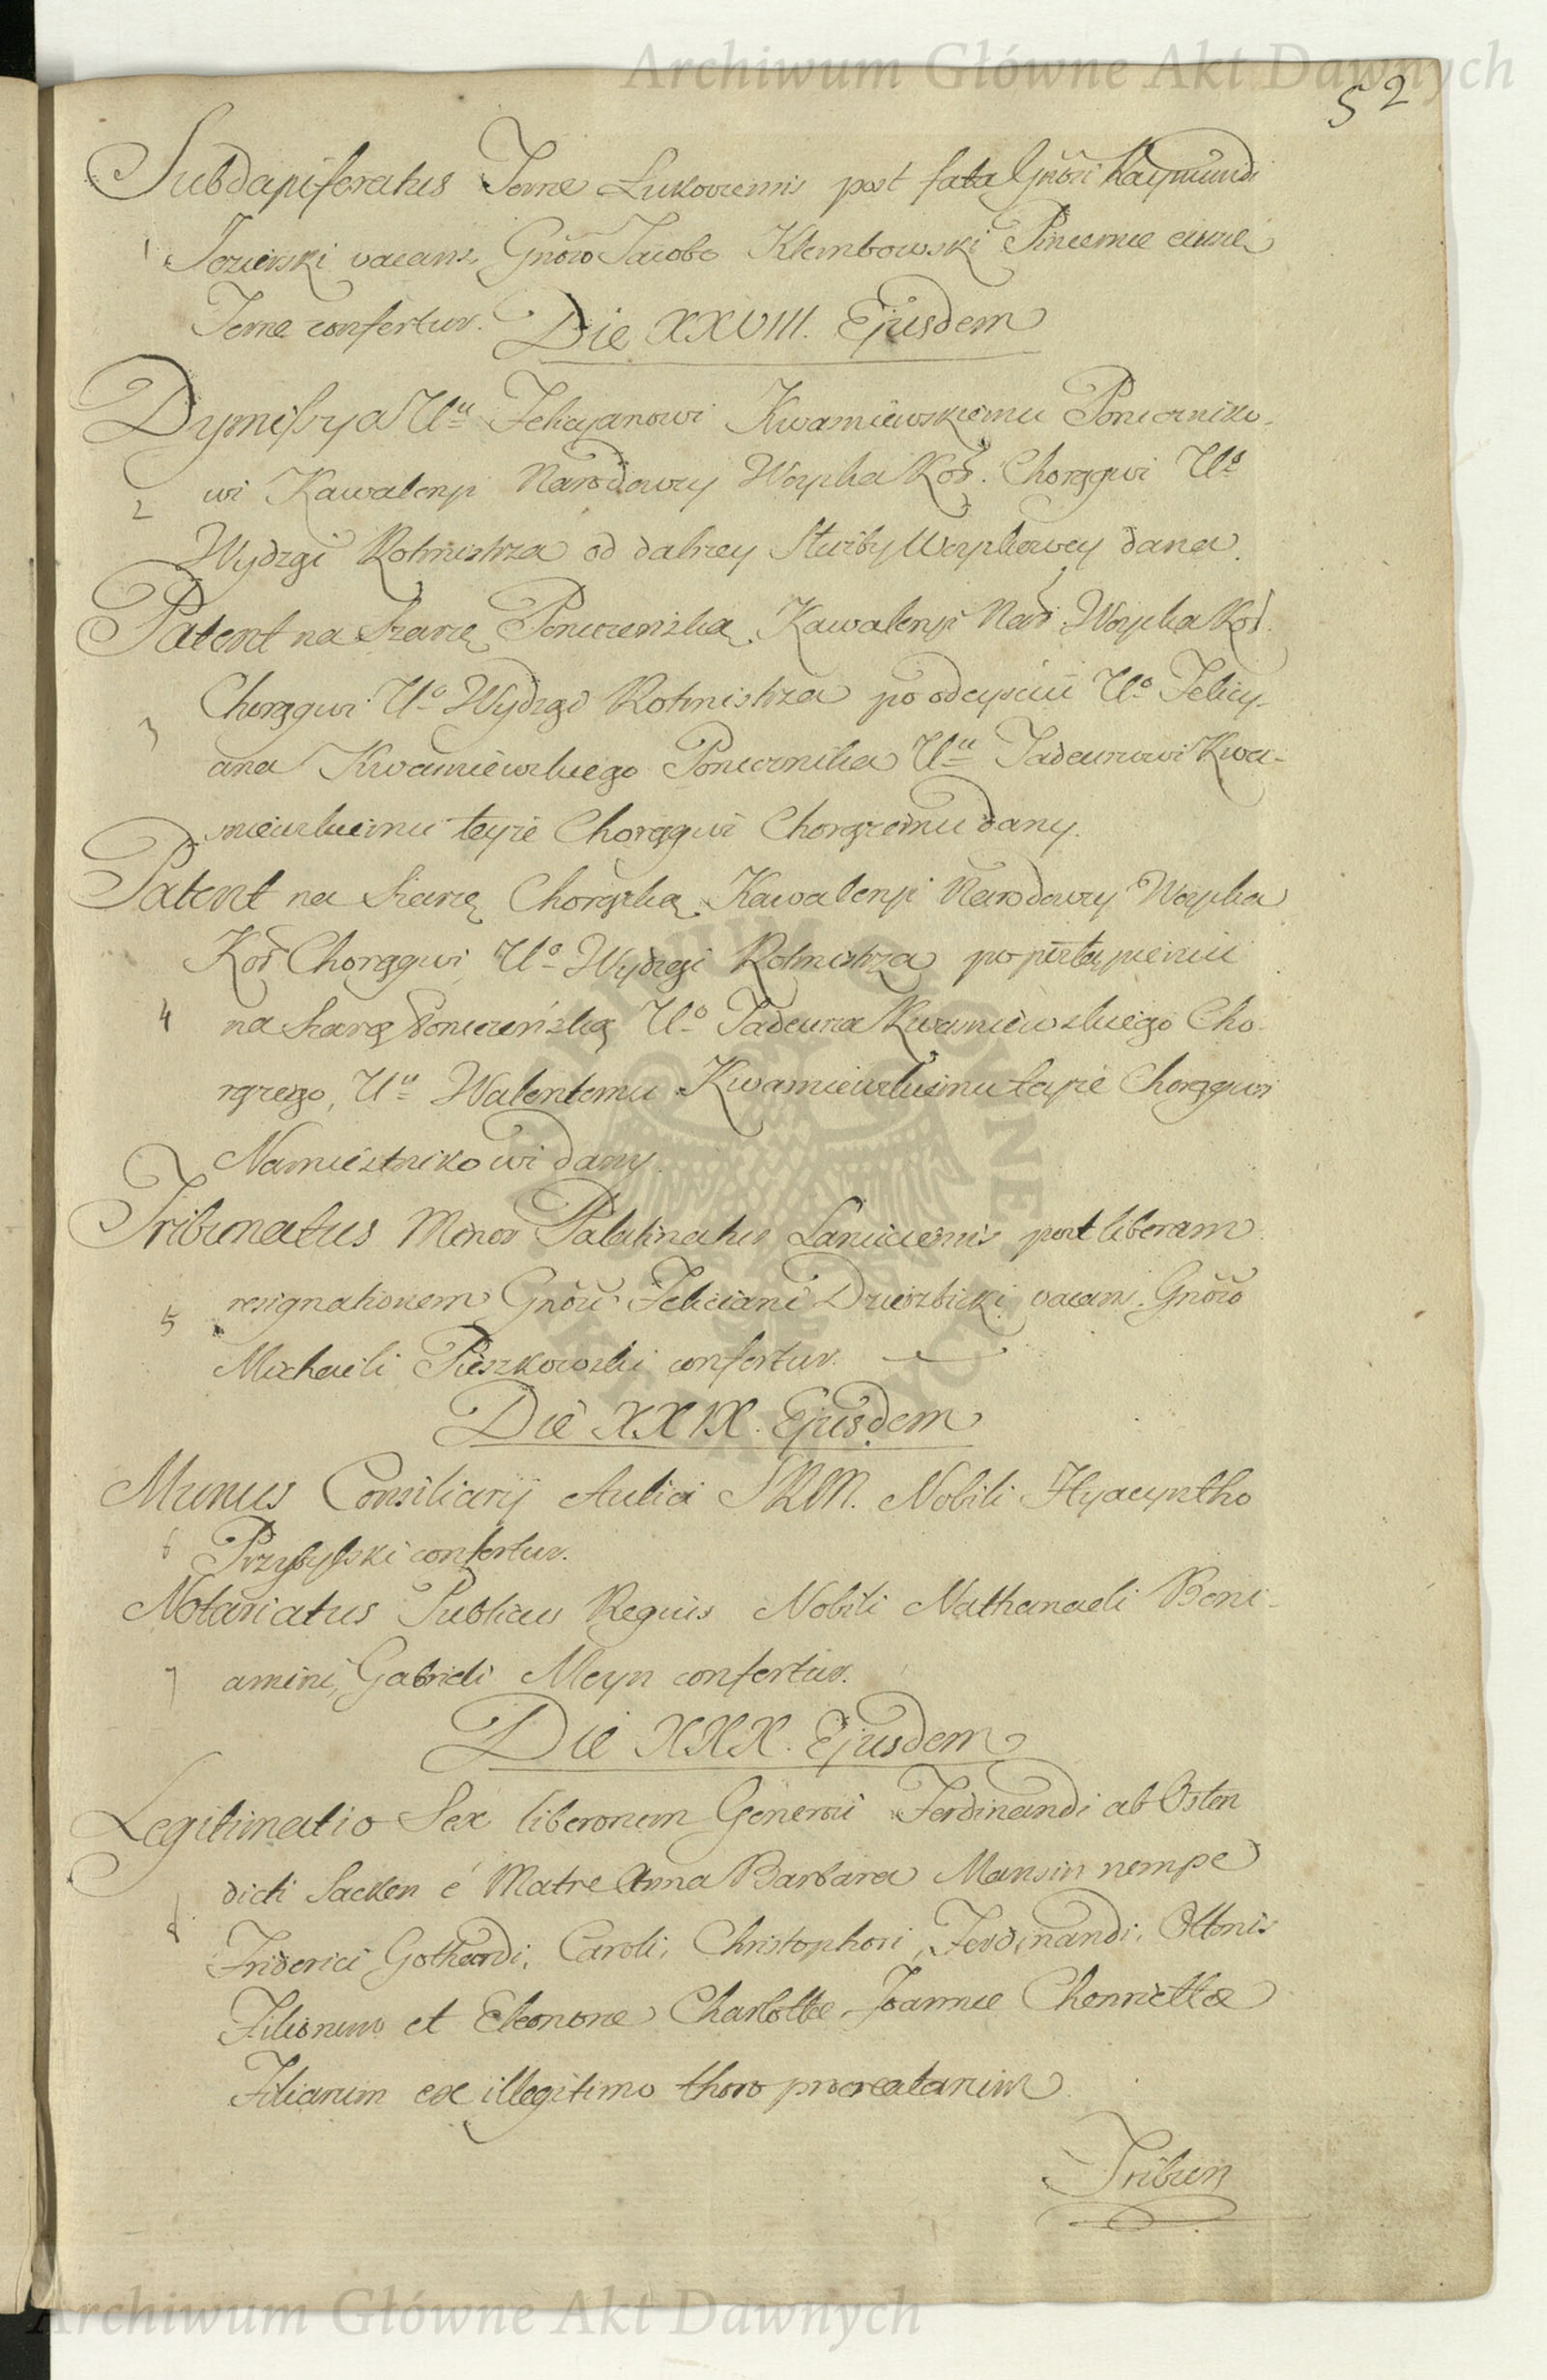 Archiwum Główne Akt Dawnych
52
Subdapiferatus Terrae Lukoviensis post fata Gnõsi Raymundi
1 Jezierski vacans, Gnõso Jacobo Klembowski Pincernae ejusdē
Terrae confertur. Die XXVIII. Ejusdem
Dymissya Uu Felicyanowi Kwaniewskiemu Poruczniko-
2 wi Kawaleryi Narodowey Woyska Kor. Chorągwi Uo
Wydzgi Rotmistrza od dalszey Służby Woyskowey dana.
Patent na Szarżę Poruczńską Kawaleryi Nar. Woyska Kor.
3 Chorągwi Uo Wydzgi Rotmistrza po odeyściu Uo Felicy-
ana Kwaniewskiego Porucznika Uu Tadeuszowi Kwa-
niewskiemu teyże Chorągwi Chorążemu dany.
Patent na Szarżę Chorążką Kawaleryi Narodowey Woyska
Kor Chorągwi Uo Wydzgi Rotmistrza po postąpieniu
4 na Szarżę Poruczńską Uo Tadeusza Kwaniewskiego Cho-
rążego, Uu Walentemu Kwaniewskiemu teyże Chorągwi
Namiestnikowi dany.
Tribunatus Minor Palatinatus Lanciciensis post liberam
5 resignationem Gnõsi Feliciani Dzierzbicki vacans, Gnõso
Michaeli Pieszkowski confertur.
Die XXIX. Ejusdem
Munus Consiliarij Aulici SRM. Nobili Hyacyntho
6 Przybylski confertur.
Notariatus Publicus Regius Nobili Nathanaeli Beni-
7 amini, Gabrieli Meyn confertur.
Die XXX. Ejusdem
Legitimatio Sex liberorum Generosi Ferdinandi ab Osten
dicti Sacken é Matre Anna Barbara Mansin nempe
8. Friderici Gothardi, Caroli, Christophori, Ferdinandi, Ottonis
Filiorum et Eleonorae Charlottae Joannae Chenriettae
Filiarum ex illegitimo thoro procreatarum.
Tribun
Archiwum Główne Akt Dawnych